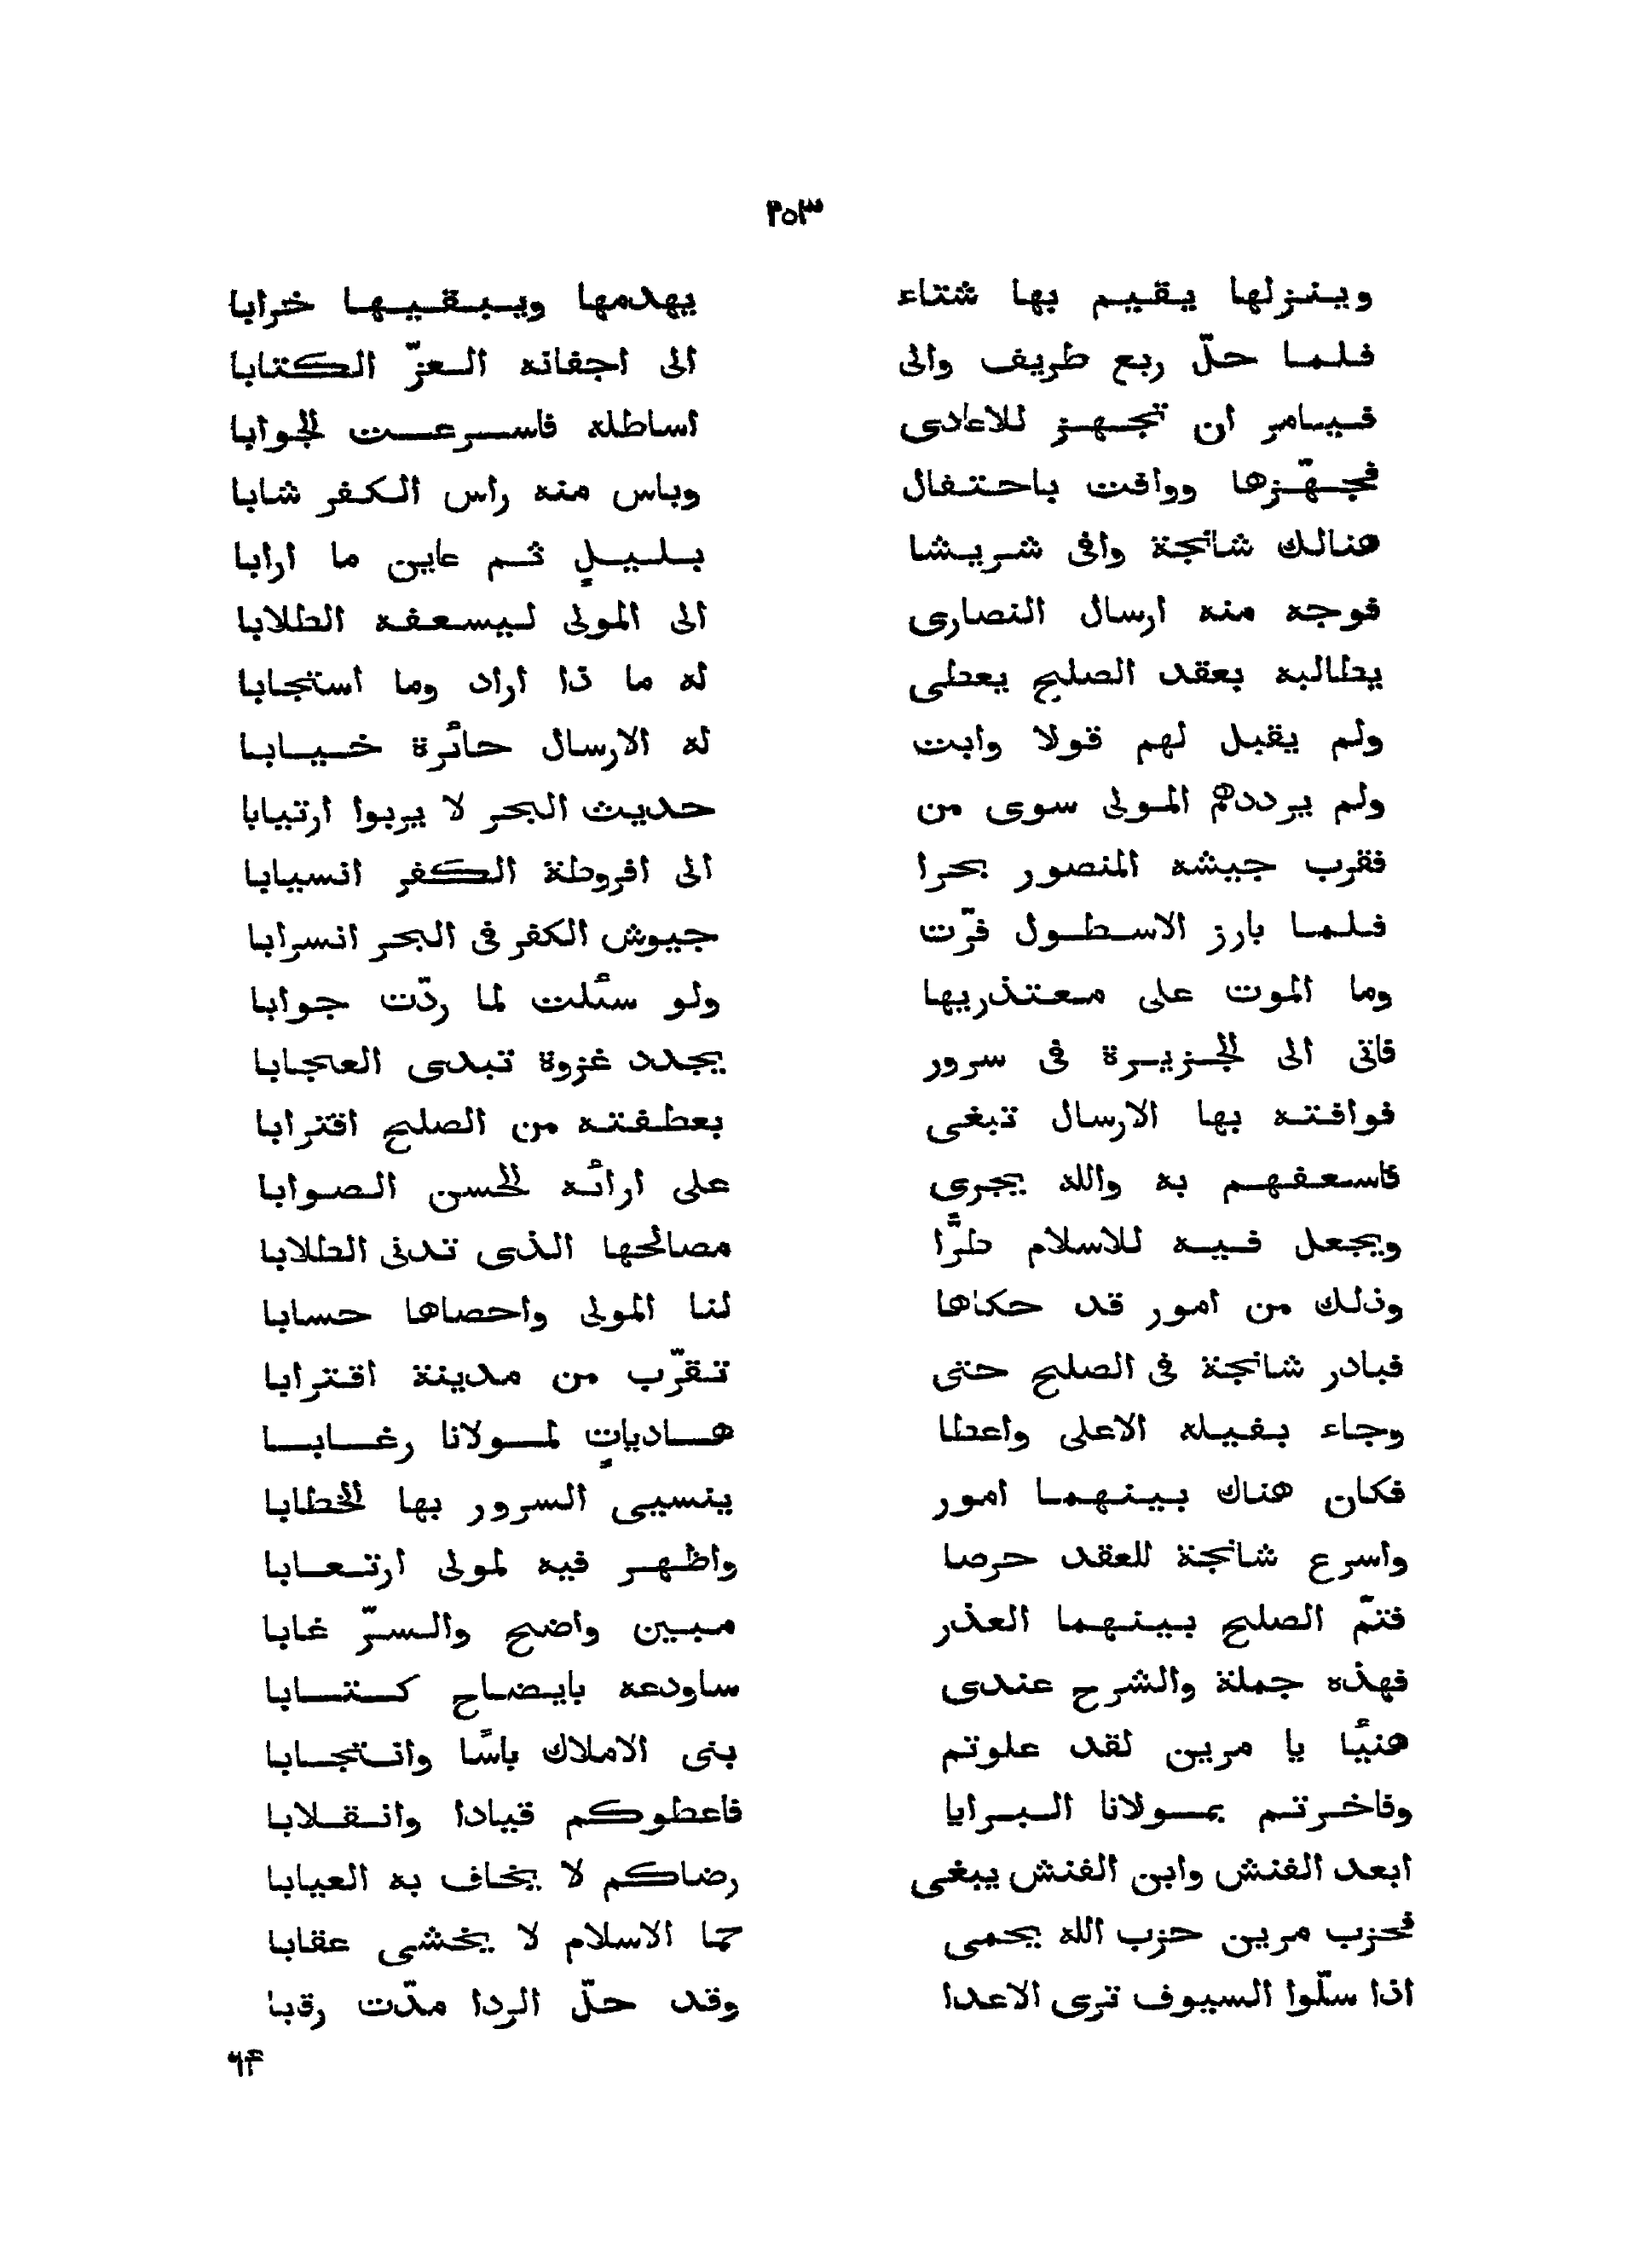 ٢٥٣
وينزلها يقيم بها شتاء يهدمها ويبقيها خرابا
فلما حلّ ربع طريف والى الى اجفانه العزّ الكتابا
فيامر ان تجهز للاعادى اساطله فاسرعت لجوابا
فجهّزها ووافت باحتفال وباس منه راس الكفر شابا
هنالك شانجة وافى شريشا بليلٍ ثم عاين ما ارابا
فوجه منه ارسال النصارى الى المولى ليسعفه الطلابا
يطالبه بعقد الصلح يعطى له ما ذا اراد وما استجابا
ولم يقبل لهم قولا وابت له الارسال حائرة خيابا
ولم يرددهم المولى سوى من حديث البحر لا يربوا ارتيابا
فقرب جيشه المنصور بحرا الى افروطة الكفر انسيابا
فلما بارز الاسطول فرّت جيوش الكفر فى البحر انسرابا
وما الموت على معتذريها ولو سئلت لما ردّت جوابا
فاتى الى لجزيرة فى سرور يجدد غزوة تبدى العجابا
فوافته بها الارسال تبغى بعطفته من الصلح اقترابا
فاسعفهم به والله يجرى على ارائه لحسن الصوابا
ويجعل فيه للاسلام طرًّا مصالحها الذى تدنى الطلابا
وذلك من امور قد حكاها لنا المولى واحصاها حسابا
فبادر شانجة فى الصلح حتى تقرّب من مدينة اقترابا
وجاء بفيله الاعلى واعطا هادياتٍ لمولانا رغابا
فكان هناك بينهما امور ينسيى السرور بها لخطابا
واسرع شانجة للعقد حرصا واظهر فيه لمولى ارتعابا
فتمّ الصلح بينهما العذر مبين واضح والسرّ غابا
فهذه جملة والشرح عندى ساودعه بايضاح كتابا
هنئًا يا مرين لقد علوتم بنى الاملاك باسًا وانتجابا
وفاخرتم بمولانا البرايا فاعطوكم قيادا وانقلابا
ابعد الفنش وابن الفنش يبغى رضاكم لا يخاف به العيابا
فحزب مرين حزب الله يحمى حما الاسلام لا يخشى عقابا
اذا سلّوا السيوف ترى الاعدا وقد حلّ الردا مدّت رقبا
٦۴